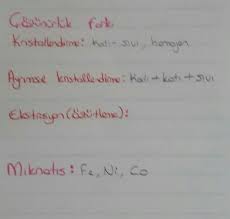 Çözünürlük farkı
Kristallendirme: Katı-sıvı, homojen
Ayrımsal kristallendirme: Katı+katı+sıvı
Ekstrasyon (özütleme):
Mıknatıs: Fe, Ni, Co